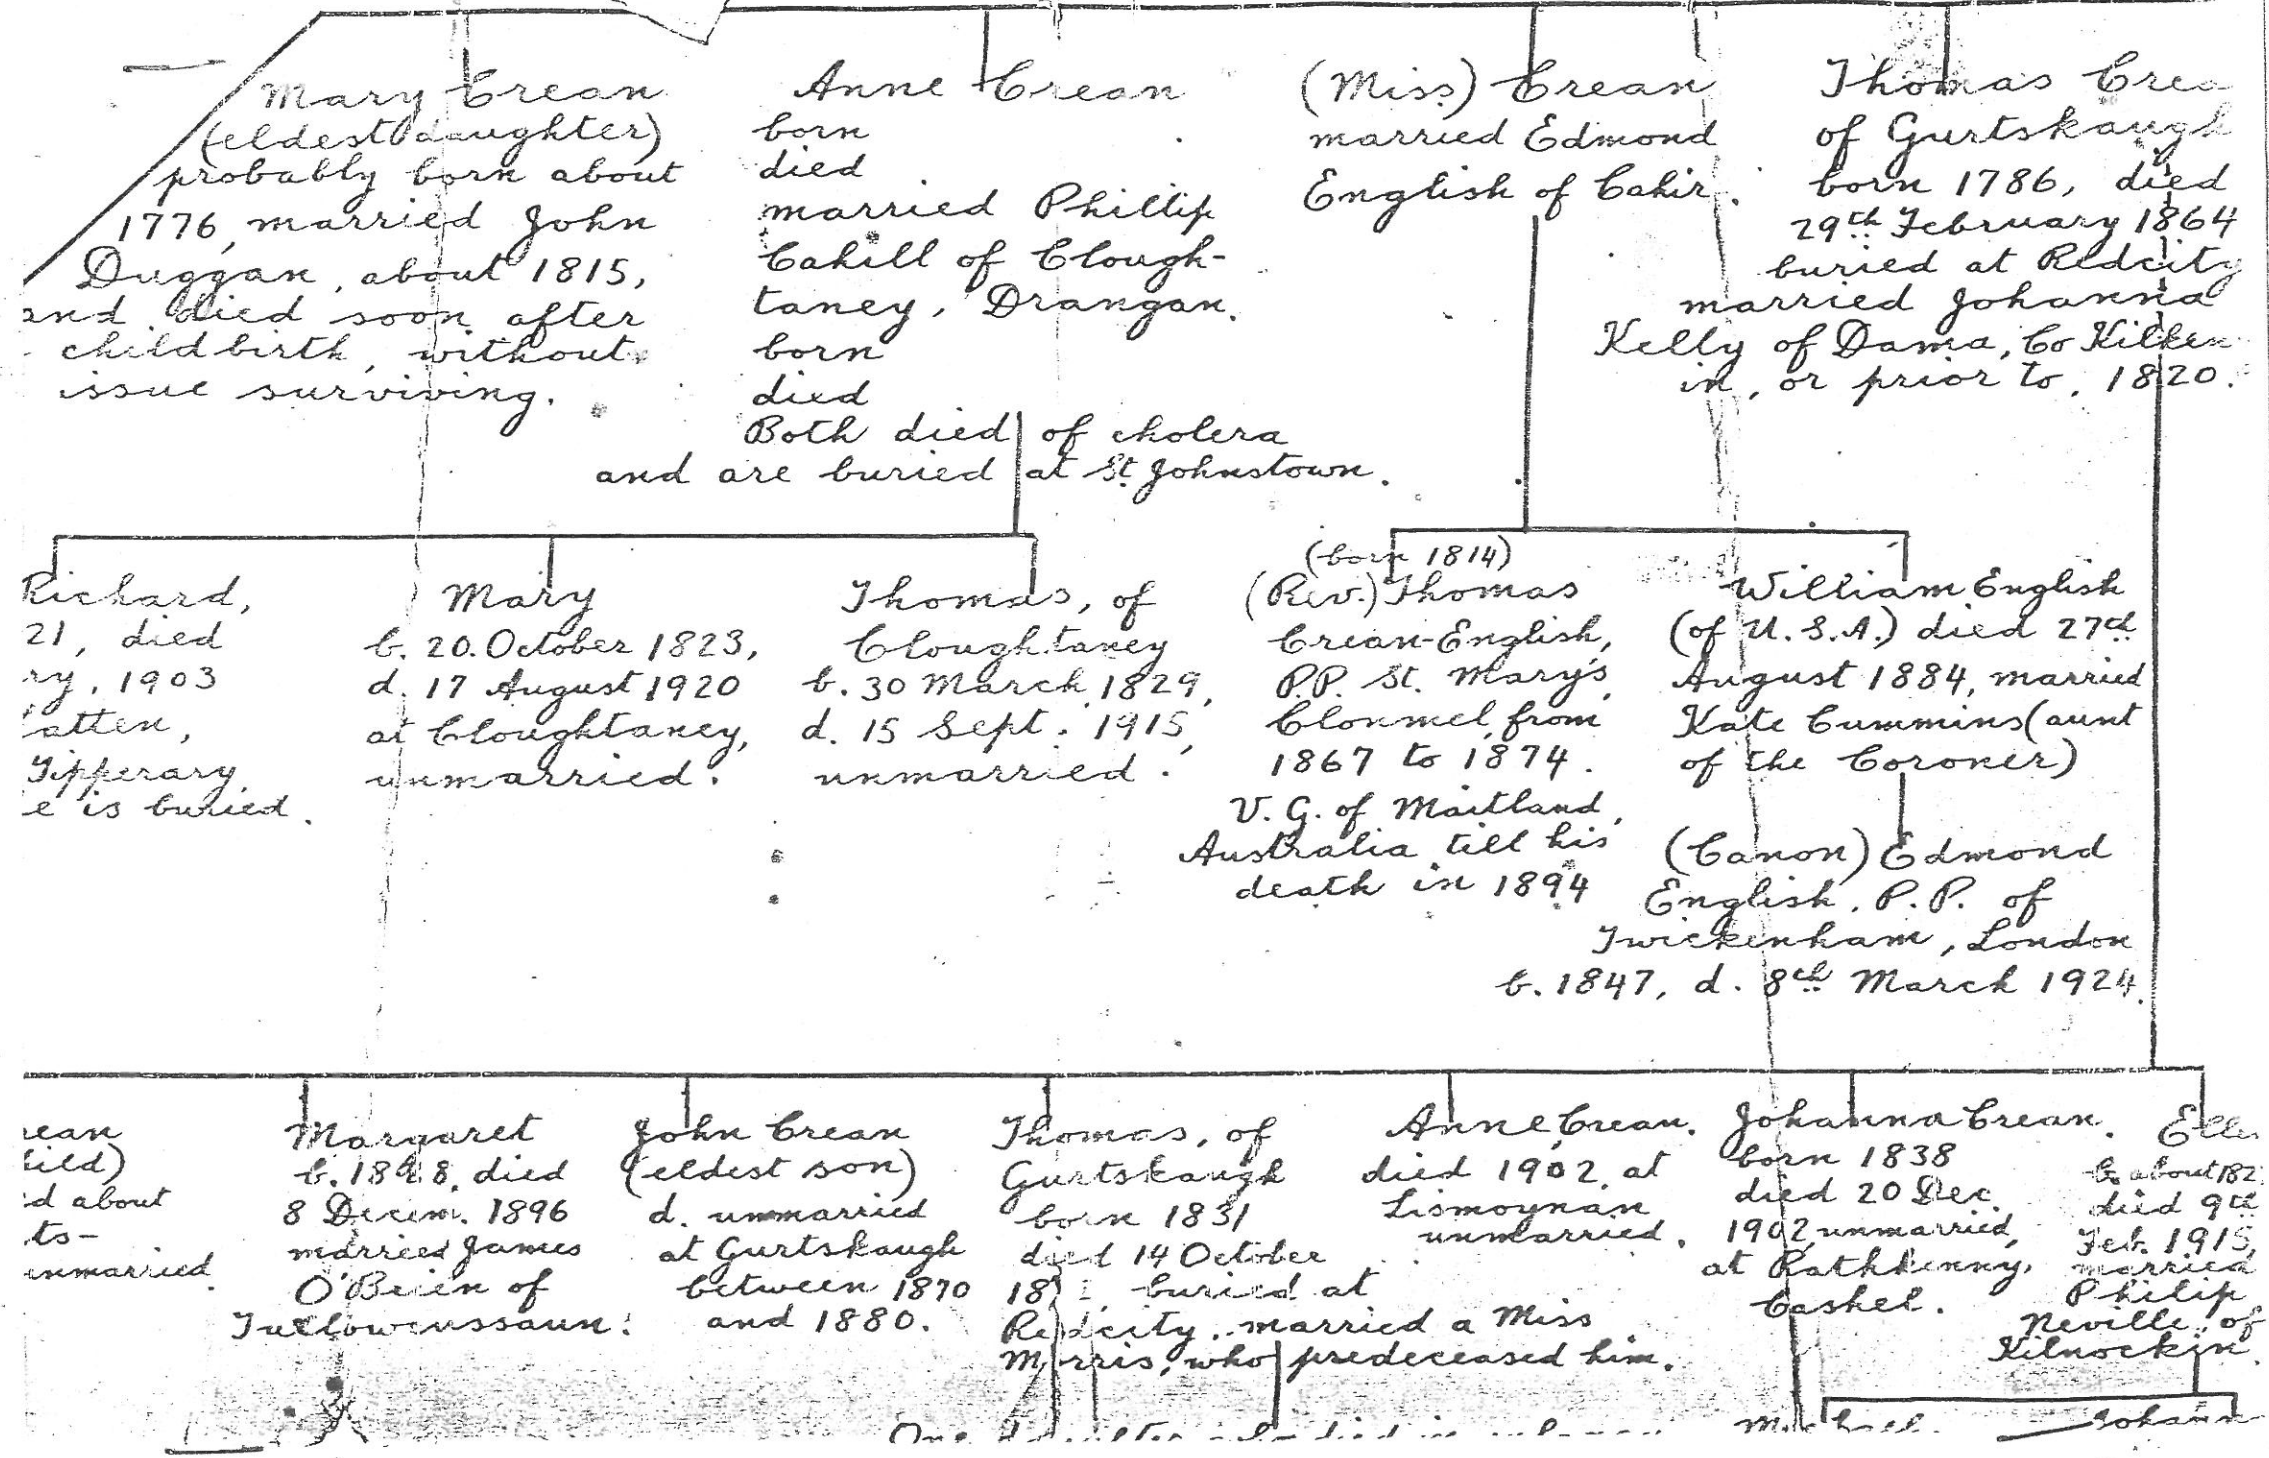 Mary Crean
(eldest daughter)
probably born about
1776, married John
Duggan, about 1815,
and died soon after
childbirth, without
issue surviving.
Anne Crean
born
died
married Phillip
Cahill of Clough-
taney, Drangan.
born
died
Both died of cholera
and are buried at St. Johnstown.
(Miss) Crean
married Edmond
English of Cahir.
Thomas Crea
of Gurtskaugh
born 1786, died
29th February 1864
buried at Redcity
married Johanna
Kelly of Dama, Co Kilken
in, or prior to, 1820.
Richard,
21, died
ry, 1903
atten,
Tipperary
e is buried.
Mary
b. 20. October 1823,
d. 17 August 1920
at Cloughtaney,
unmarried.
Thomas, of
Cloughtaney
b. 30 March 1829,
d. 15 Sept. 1915,
unmarried.
(born 1814)
(Rev.) Thomas
Crean-English,
P.P. St. Mary's,
Clonmel, from
1867 to 1874.
V. G. of Maitland,
Australia till his
death in 1894
William English
(of U.S.A.) died 27th
August 1884, married
Kate Cummins (aunt
of the Coroner)
(Canon) Edmond
English, P.P. of
Twickenham, London
b. 1847, d. 8th March 1924.
rean
hild)
d about
ts-
unmarried.
Margaret
b. died
8 Decem. 1896
married James
O'Brien of
John Crean
(eldest son)
d. unmarried
at Gurtskaugh
between 1870
and 1880.
Thomas, of
Gurtskaugh
born 1831
died 14 October
18 buried at
Redcity, married a Miss
Morris, who predeceased him.
Anne Crean.
died 1902 at
Lismoynan
unmarried.
Johanna Crean.
born 1838
died 20 Dec.
1902, unmarried,
at Rathkenny,
Cashel.
Elle
b. about 182
died 9th
Feb. 1915,
married
Philip
Neville of
Kilnockin.
One
Michael.
Johann